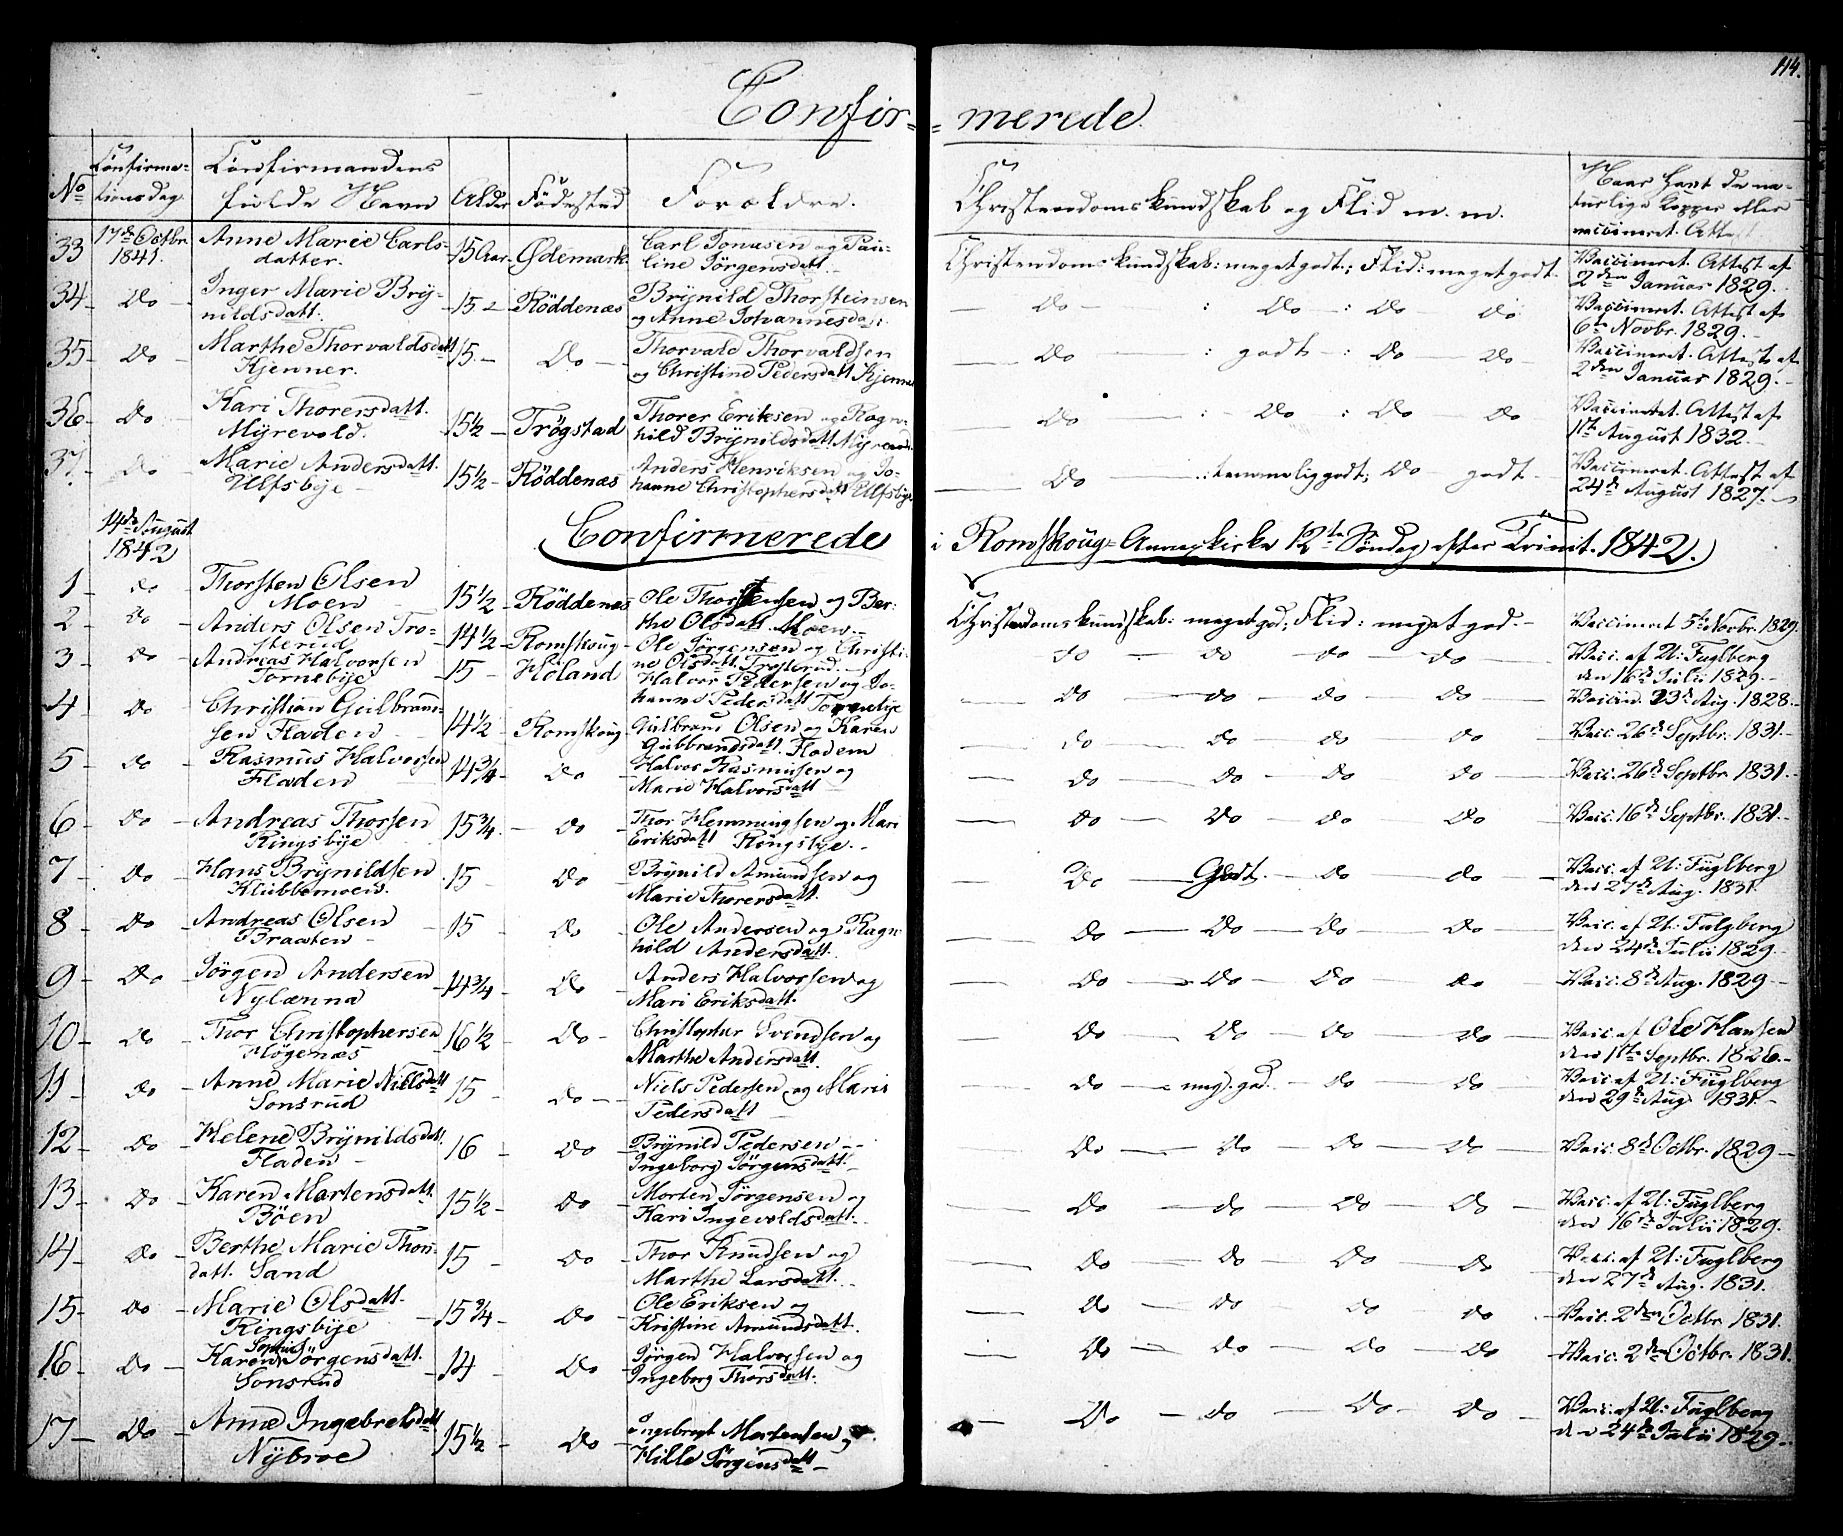 114.
Confir= =merede.
No Confirma=tionsdag Confirmandens fulde Navn Alder Födested Forældre. Christendomskundskab og Flid m. m. Haar havt de naturlige Kopper eller vaccineret. Attest
33 17de Octbr. 1841. Anne Marie Carlsdatter. 15 Aar Ødemark Carl Jonasen og Pauline Jörgensdatt. Christendomskundskab: meget godt; Flid: meget godt. Vaccineret. Attest af 2den Januar 1829.
34 Do Inger Marie Brÿnildsdatt. 15 Röddenæs Brÿnild Thorsteinsen og Anne Johannesdatt. Do : Do : Do Do Vaccineret. Attest af 6te Novbr. 1829.
35 Do Marthe Thorvaldsdatt Kjenner. 15 Do Thorvald Thorvaldsen og Christine Pedersdatt Kjenner Do : godt : Do Do Vaccineret. Attest af 2den Januar 1829.
36 Do Kari Thorersdatt. Mÿrevold. 15½ Trögstad Thorer Eriksen og Ragnhild Brÿnildsdatt Do : Do : Do Do Vaccineret. Attest af 11te August 1832.
37 do Marie Andersdatt. Ulfsbÿe 15½ Röddenæs Anders Henriksen og Johanne Christophersdatt Ulfsbÿe Do : temmelig godt; Do godt Vaccineret. Attest af 24de August 1827.
14de August 1842 Confirmerede i Romskoug Annexkirke 12te Söndag efter Trinit. 1842.
1 do Thorsten Olsen Moen 15½ Röddenæs Ole Thorstensen og Berthe Olsdatt. Moen. Christendomskundskab: meget god; Flid: meget god. Vaccineret 5te Novbr. 1829.
2 Do Anders Olsen Trosterud 14½ Romskoug Ole Jörgensen og Christine Olsdatt. Trosterud. do do do do Vacc. af U: Fuglberg den 16de Julii 1829.
3 do Andreas Halvorsen Tornebÿe 15 Höland Halvor Pedersen og Johanne Pedersdatt Tornebÿe Do do do Do Vaccin. 23de Aug. 1828.
4 Do Christian Gulbrandsen Fladen 14½ Romskoug Gulbrand Olsen og Karen Gulbrandsdatt. Fladen do do do do Vacc. 26de Septbr. 1831.
5 do Rasmus Halvorsen Fladen 14¾ do Halvor Rasmusen og Marie Halvorsdatt do Do do Do Vacc. 26de Septbr. 1831.
6 do Andreas Thorsen Ringsbÿe 15¾ do Thor Hemmingsen og Mari Eriksdatt Ringsbÿe. do Do do do Vacc. 16de Septbr. 1831.
7 do Hans Brÿnildsen Klubbemoen. 15 do Brÿnild Amundsen og Marie Thorersdatt. Do Godt. do do Vacc. af U: Fuglberg den 27de Aug. 1831
8 Do Andreas Olsen Braaten 15 do Ole Andersen og Ragnhild Andersdatt. do Do Do do Vacc. af U: Fuglberg den 24de Julii 1829.
9 Do Jörgen Andersen Nÿlænna 14¾ do Anders Halvorsen og Mari Eriksdatt. do Do Do do Vacc. 8de Aug. 1829
10 do Thor Christophersen Högenæs 16½ Do Christopher Svendsen og Marthe Andersdatt. do Do do Do Vacc. af Ole Hansen den 11te Septbr. 1826.
11 do Anne Marie Nielsdatt Sonsrud 15 do Niels Pedersen og Marie Pedersdatt do meg. god. do do Vacc. af U: Fuglberg den 29de Aug. 1831.
12 do Helene Brÿnildsdatt. Fladen 16 do Brÿnild Pedersen Ingeborg Jörgensdatt. do Do do Do Vacc. 8de Octbr. 1829
13 do Karen Martensdatt. Böen 15½ Do Morten Jörgensen og Kari Ingevoldsdatt. do do do do Vacc. af U: Fuglberg den 16de Julii 1829.
14 do Berthe Marie Thorsdatt. Sand 15 do Thor Knudsen og Marthe Larsdatt. Do do Do do Vacc. af U: Fuglberg den 27de Aug. 1831.
15 do Marie Olsdatt. Ringsbÿe 15¾ do Ole Eriksen og Kristine Amundsdatt. do do do do Vacc. 2den Octbr. 1831.
16 do Karen Sophie Jörgensdatt. Sonsrud 14 Do Jörgen Halvorsen og Ingeborg Thorsdatt. Do do do Do Vacc. 2den Octbr. 1831.
17 Do Anne Ingebretsdatt Nÿbroe 15½ do Ingebregt Mortensen og Hille Jörgensdatt Do do Do do Vacc. af U: Fuglberg den 24de Julii 1829.